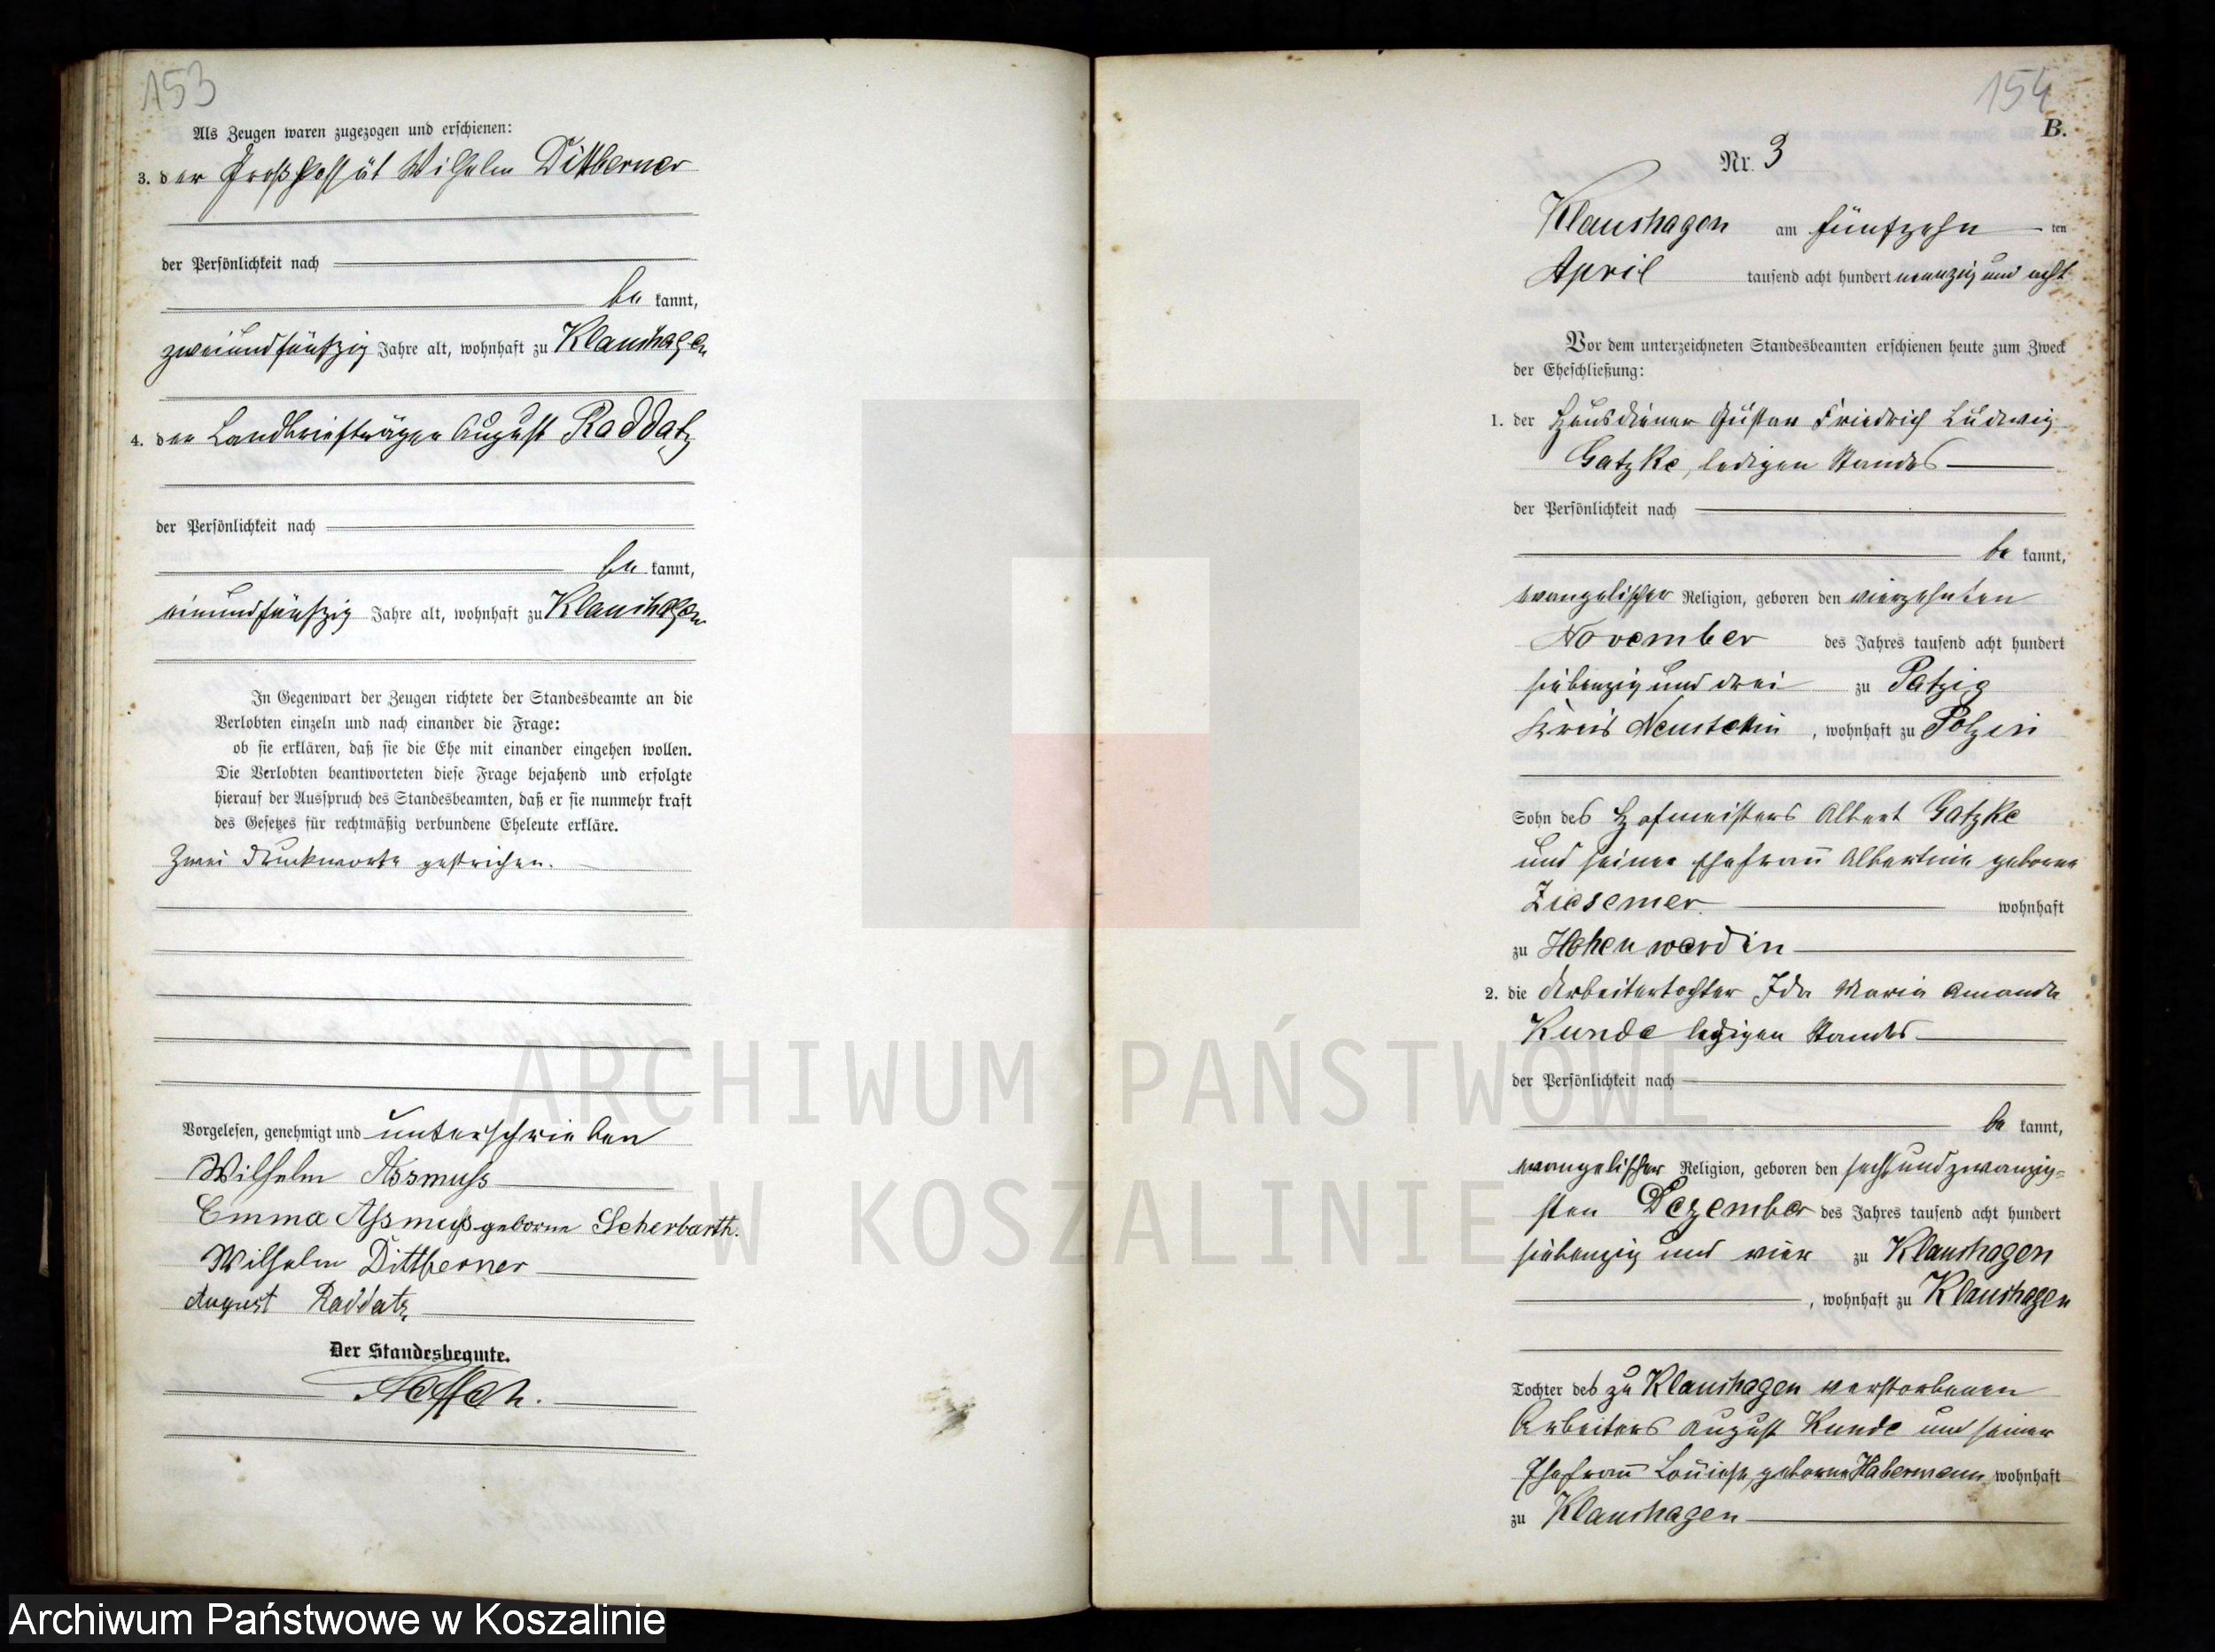 153
Als Zeugen waren zugezogen und erschienen:
3. der Großkossät Wilhelm Dittberner
der Persönlichkeit nach
be kannt,
zweiundfünfzig Jahre alt, wohnhaft zu Klaushagen
4. der Landbriefträger August Raddatz
der Persönlichkeit nach
be kannt,
einundfünfzig Jahre alt, wohnhaft zu Klaushagen
In Gegenwart der Zeugen richtete der Standesbeamte an die
Verlobten einzeln und nach einander die Frage:
ob sie erklären, daß sie die Ehe mit einander eingehen wollen.
Die Verlobten beantworteten diese Frage bejahend und erfolgte
hierauf der Ausspruch des Standesbeamten, daß er sie nunmehr kraft
des Gesetzes für rechtmäßig verbundene Eheleute erkläre.
Zwei Druckworte gestrichen.
Vorgelesen, genehmigt und unterschrieben
Wilhelm Assmuss
Emma Assmuss geborne Scherbarth.
Wilhelm Dittberner
August Raddatz
Der Standesbeamte.
154
B.
Nr. 3
Klaushagen am fünfzehn ten
April tausend acht hundert neunzig und acht
Vor dem unterzeichneten Standesbeamten erschienen heute zum Zweck
der Eheschließung:
1. der Hausdiener Gustav Friedrich Ludwig
Gatzke, ledigen Standes
der Persönlichkeit nach
be kannt,
evangelischer Religion, geboren den vierzehnten
November des Jahres tausend acht hundert
siebenzig und drei zu Patzig
Kreis Neustettin, wohnhaft zu Polzin
Sohn des Hofmeisters Albert Gatzke
und seiner Ehefrau Albertine geborne
Ziesemer wohnhaft
zu Hohenwardin
2. die Arbeitertochter Ida Maria Amanda
Kunde ledigen Standes
der Persönlichkeit nach
be kannt,
evangelischer Religion, geboren den sechsundzwanzig=
sten Dezember des Jahres tausend acht hundert
siebenzig und vier zu Klaushagen
, wohnhaft zu Klaushagen
Tochter des zu Klaushagen verstorbenen
Arbeiters August Kunde und seiner
Ehefrau Louise, geborne Habermann wohnhaft
zu Klaushagen
ARCHIWUM PAŃSTWOWE
W KOSZALINIE
Archiwum Państwowe w Koszalinie